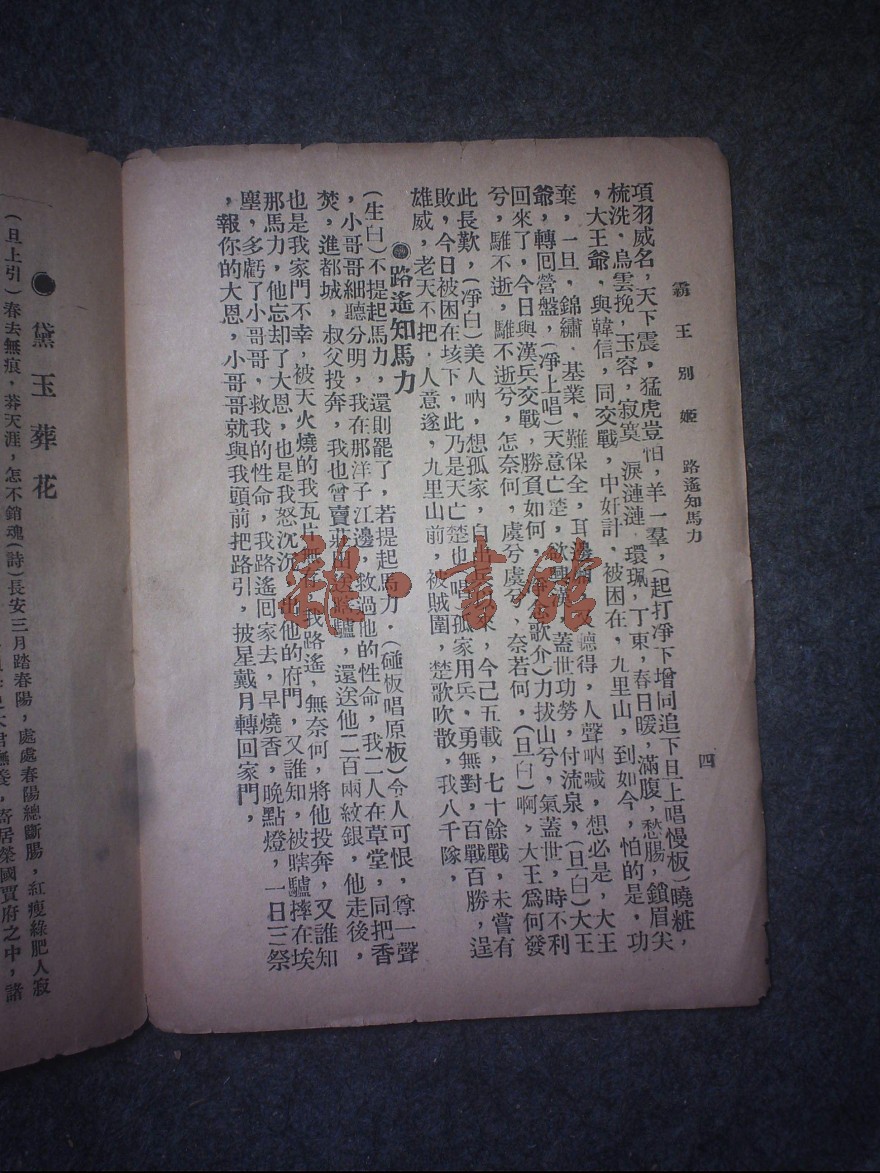 霸王別姬　路遙知馬力
四
項羽威名，天下震，猛虎豈怕，羊一羣，（起打淨下增同追下旦上唱慢板）曉粧，
梳洗，烏雲挽，玉容，寂寞，淚漣漣，環珮，丁東，春日暖，滿腹，愁腸，鎖眉尖
，大王爺，與韓信，同交戰，中奸計，被困在，九里山，到如今，怕的是，功
棄，一旦，錦繡．基業，難保全，耳邊廂，聽得，人聲吶喊，想必是，大王
爺，轉囘營盤，（淨上唱）天意亡楚，欲興漢，蓋世功勞，付流泉，（旦白）大王
回來了，今日與漢兵交戰，勝負如何，歌介）力拔山兮，氣蓋世，時不利
兮，騅不逝，騅不逝兮，怎奈何，虞兮虞兮，奈若何，（旦白）啊，大王爲何發
此長歎，（淨白）美人吶，想孤家，自出兵來，今己五載，七十餘戰，未嘗有
敗，今日被困在垓下，此乃是天亡楚也唱孤家用兵，勇無對，百戰百勝，逞
雄威，老天不把．人意遂，九里山前，被賊圍，楚歌吹散，我八千隊，
路遙知馬力
（生白）不提起馬力，還則罷了，若提起馬力．（碰板唱原板）令人可恨，尊一聲
，小哥哥細聽分明，我在那洋子江邊，救過他的性命，我二人在草堂，同把香
焚，進都城，叔父投奔，我也曾賣莊田送瞎驢，還送他二百兩紋銀，他走後，
也是我家門不幸，被天火燒的我瓦片無存，我路遙，無奈何，將他投奔，又誰知
那馬力，他忘却了大恩，也是我怒沉沉出他的府門，又誰知，被瞎驢摔在埃
塵，多虧了小哥哥，救我的性命，我路遙回家去，早燒香，晚點燈，一日三祭
，報你的大恩，小哥哥就與我頭前把路引，披星戴月轉回家門，
雜·書館
黛玉葬花
（旦上引）春去無痕，莽天涯，怎不銷魂（詩）長安三月踏春陽，處處春陽總斷腸，紅瘦綠肥人寂
，寄居榮國賈府之中，諸